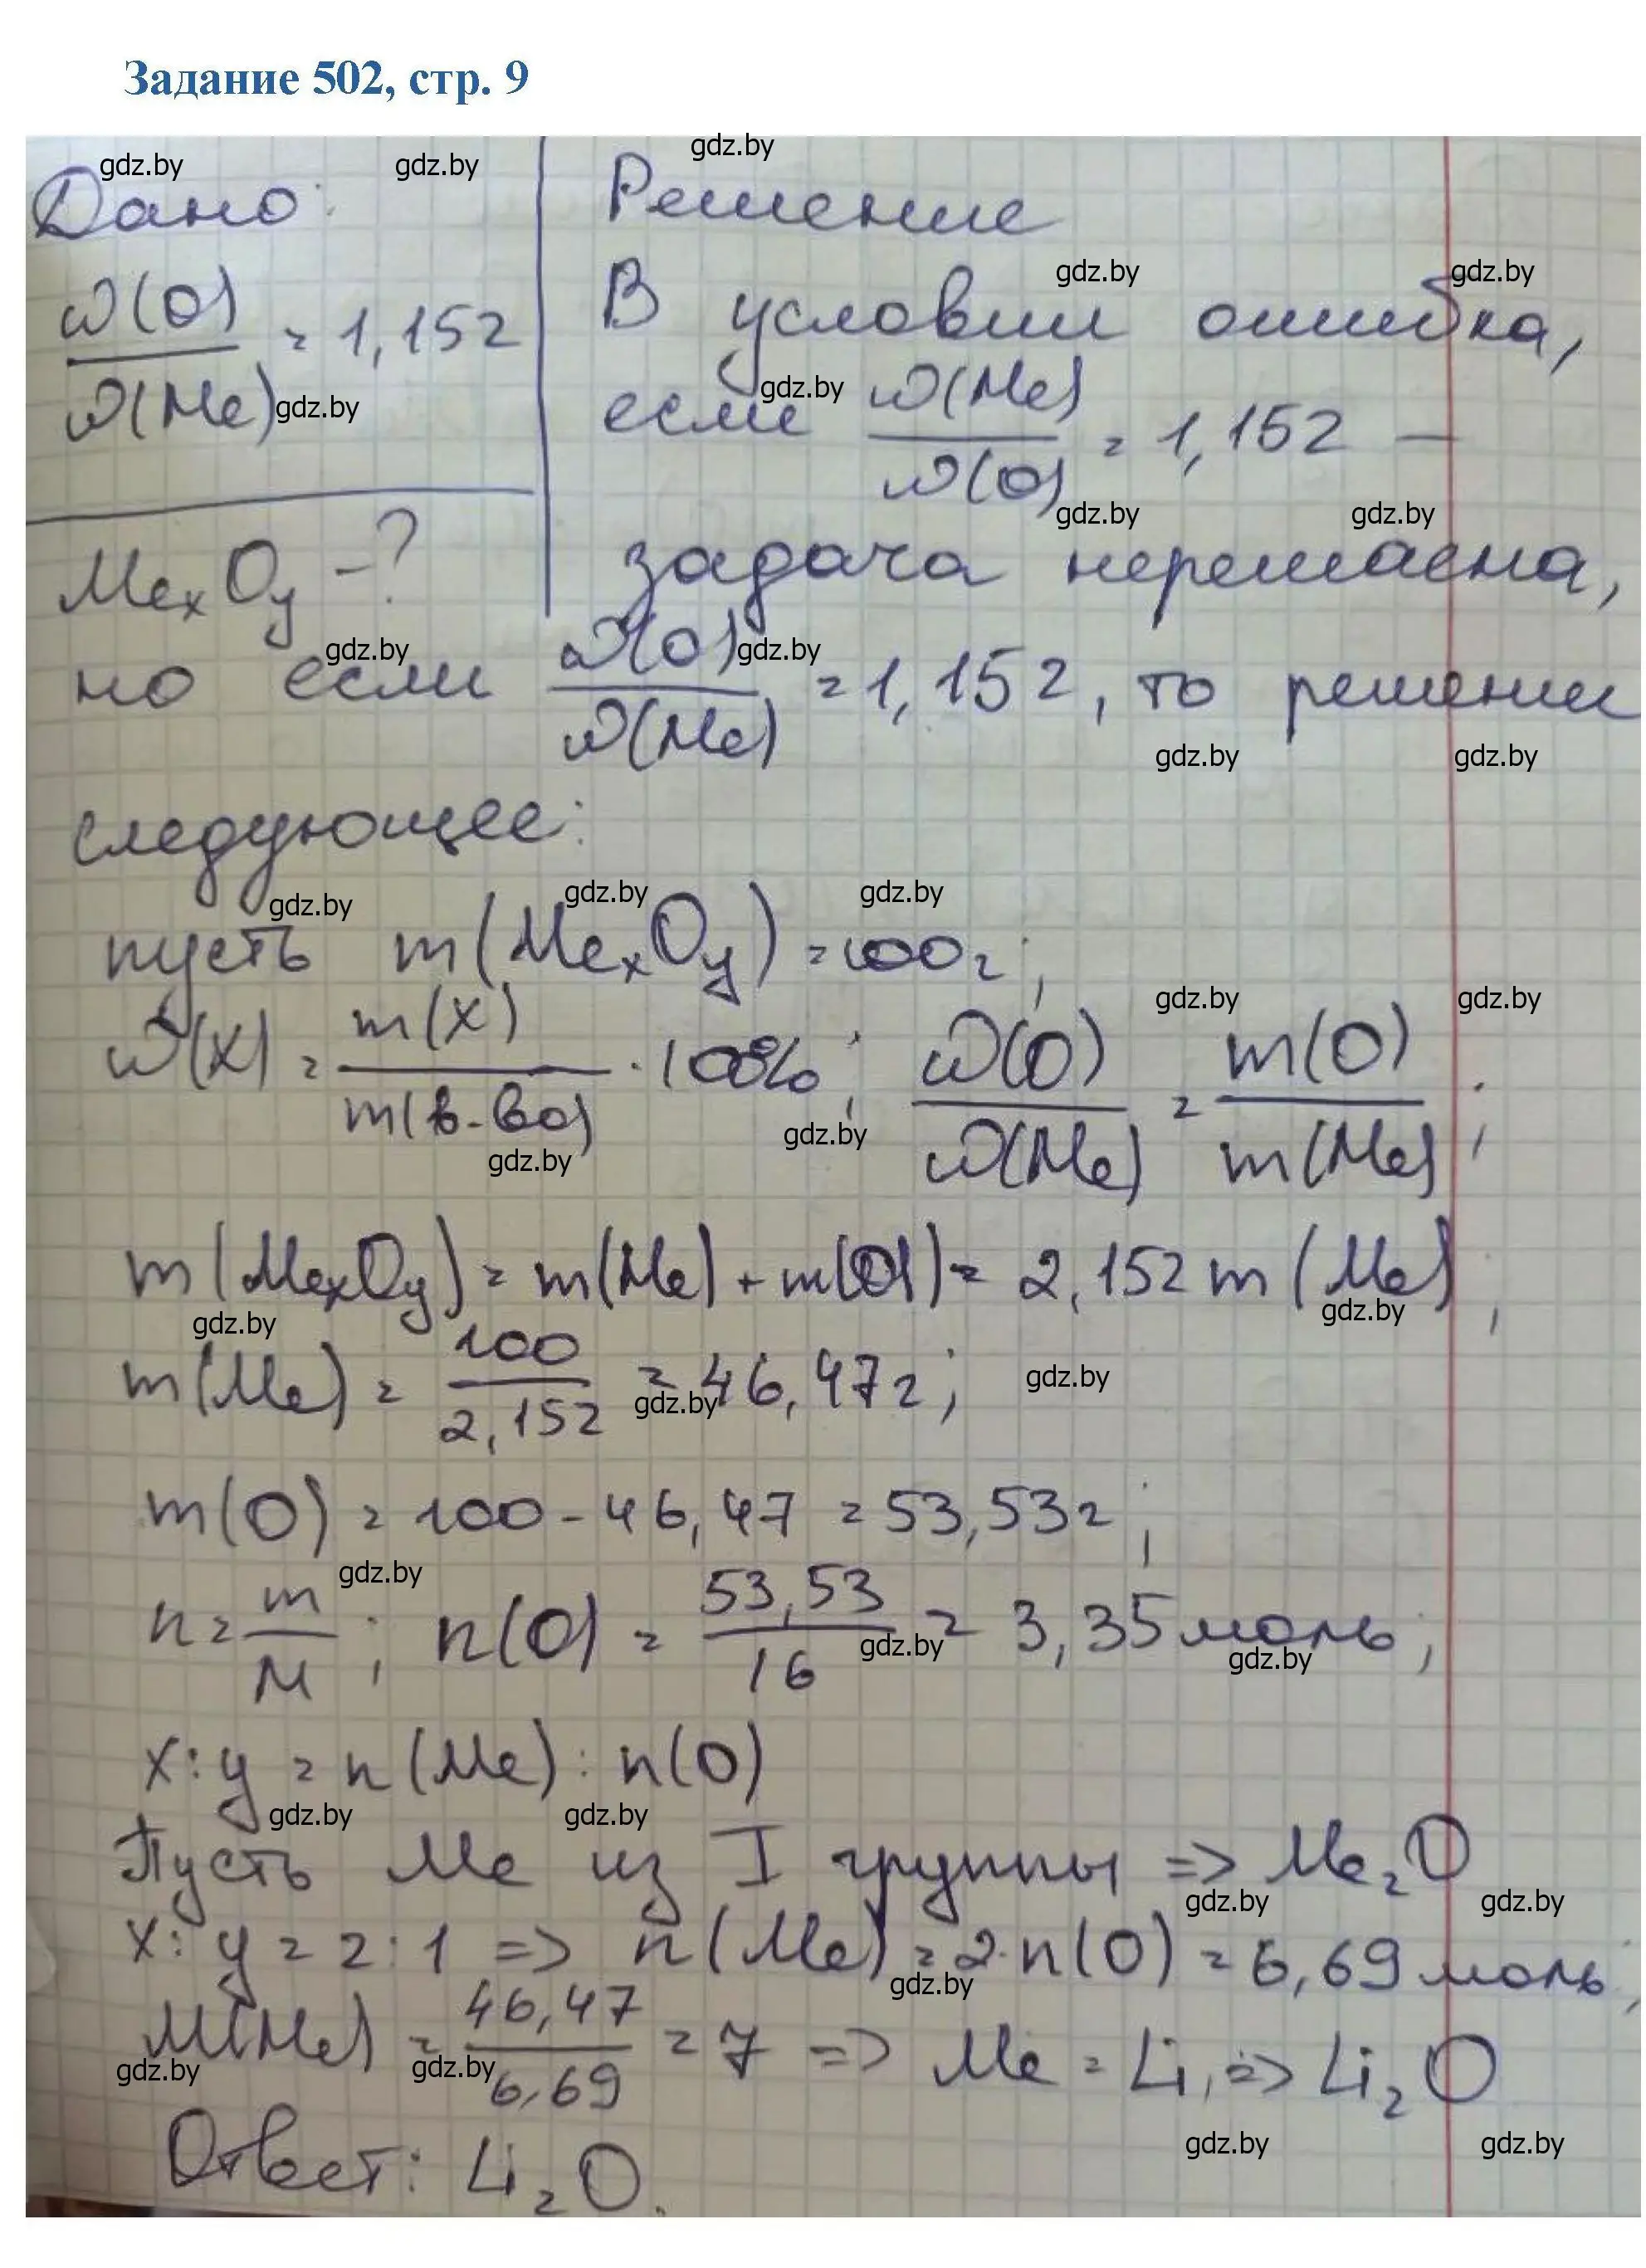 Задание 502, стр. 9
Дано:
ω(O)/ω(Me) = 1,152
MexOy - ?
Решение
В условии ошибка,
если ω(Me)/ω(O) = 1,152 —
задача нерешаема,
но если ω(O)/ω(Me) = 1,152, то решении
следующее:
пусть m(MexOy) = 100г;
ω(x) = m(x)/m(в-ва) · 100%; ω(O)/ω(Me) = m(O)/m(Me);
m(MexOy) = m(Me) + m(O) = 2,152 m(Me);
m(Me) = 100/2,152 = 46,47г;
m(O) = 100 - 46,47 = 53,53г;
n = m/M; n(O) = 53,53/16 = 3,35 моль;
x : y = n(Me) : n(O)
Пусть Me из I группы => Me₂O
x : y = 2 : 1 => n(Me) = 2·n(O) = 6,69 моль;
M(Me) = 46,47/6,69 = 7 => Me = Li, => Li₂O
Ответ: Li₂O.
gdz.by